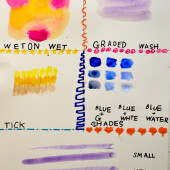 WET ON WET
GRADED WASH
BLUE BLUE BLUE
WHITE WATER
SHADES
TICK
SMALL